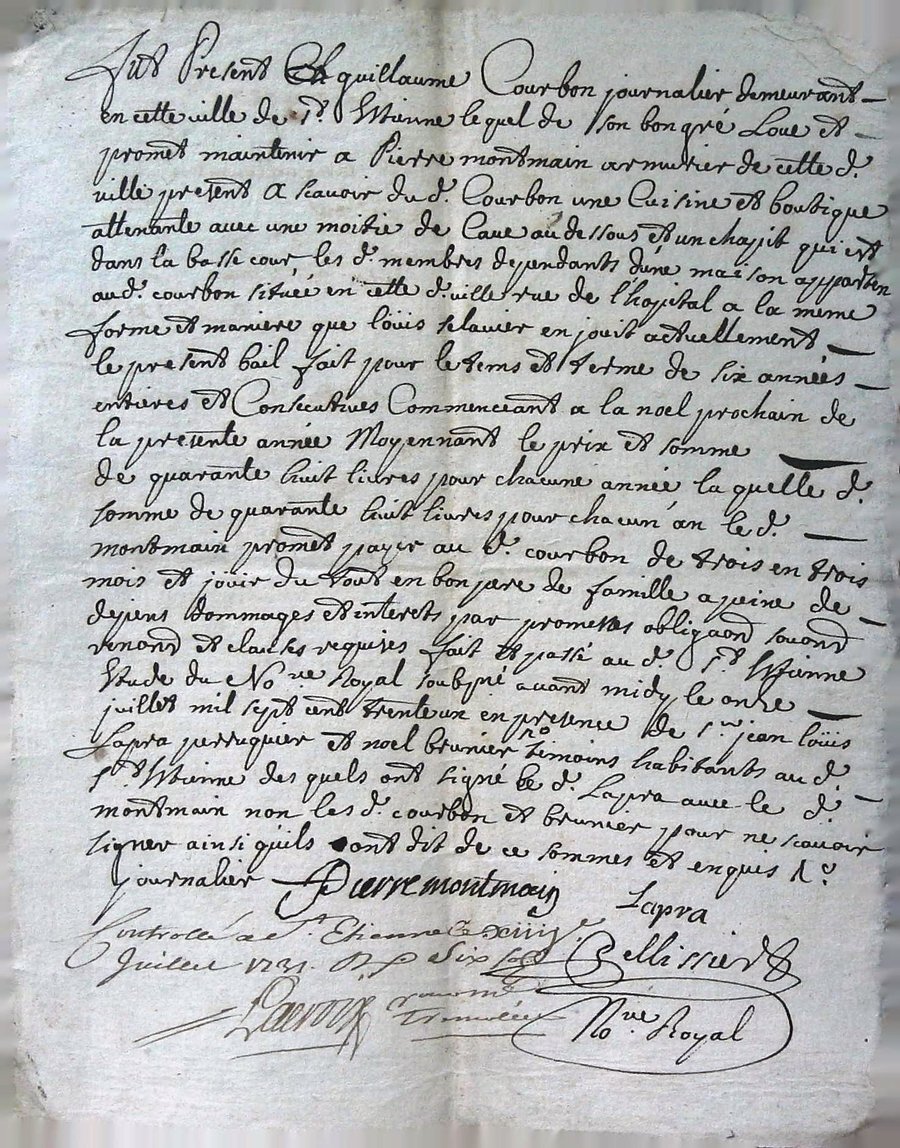 fut Present guillaume Courbon journalier demeurant
en cette ville de St. Ettienne lequel de son bon gré Loue et
promet maintenir a Pierre montmain armurier de cette d.
ville present a scavoir du d. Courbon une Cuisine et boutique
attenante avec une moitié de Cave au dessous et un chapit qui est
dans la basse cour les d. membres dependants dune maison apparten
aud. courbon située en cette d. ville rue de l'hopital a la meme
forme et maniere que loüis clavier en jouit actuellement
le present bail fait pour le tems et terme de six années
entieres et Consecutives Commenceant a la noel prochain de
la presente année Moyennant le prix et somme
de quarante huit livres pour chacune année la quelle d.
somme de quarante huit livres pour chacun an le d.
montmain promet payer au d. courbon de trois en trois
mois et jouir du tout en bon pere de famille a peine de
depens dommages et interets par promesses obligaons
renonð et clauses requises fait et passé au d. St. Ettienne
Etude du Nore Royal soubzné avant midy le onze
juillet mil sept cent trente un en presence de sr. jean loüis
Lapra perruquier et noel brunier no temoins habitants au d.
St. Ettienne des quels ont signé le d. Lapra avec le d.
montmain non les d. courbon et brunier pour ne scavoir
signer ainsi quils ont dit de ce sommes et enquis
journalier Pierre montmain Lapra
Controllé a St. Etienne le xiiii e
Juillet 1731. Rx six sols
Pellissier
Lacroix
Nore Royal